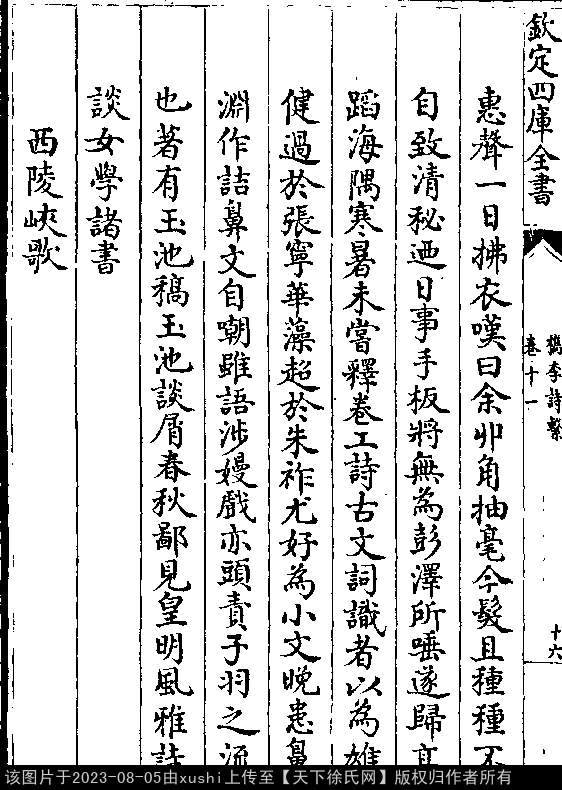 欽定四庫全書
檇李詩繫
卷十一
十六
惠聲一日拂衣嘆曰余丱角抽毫今髮且種種不
自致清秘迺日事手板將無為彭澤所唾遂歸
蹈海隅寒暑未嘗釋卷工詩古文詞識者以為雄
健過於張寧華藻超於朱祚尤好為小文晚患鼻
淵作詰鼻文自嘲雖語涉嫚戲亦頭責子羽之流
也著有玉池稿玉池談屑春秋鄙見皇明風雅詩
談女學諸書
西陵峽歌
该图片于2023-08-05由xushi上传至【天下徐氏网】版权归作者所有